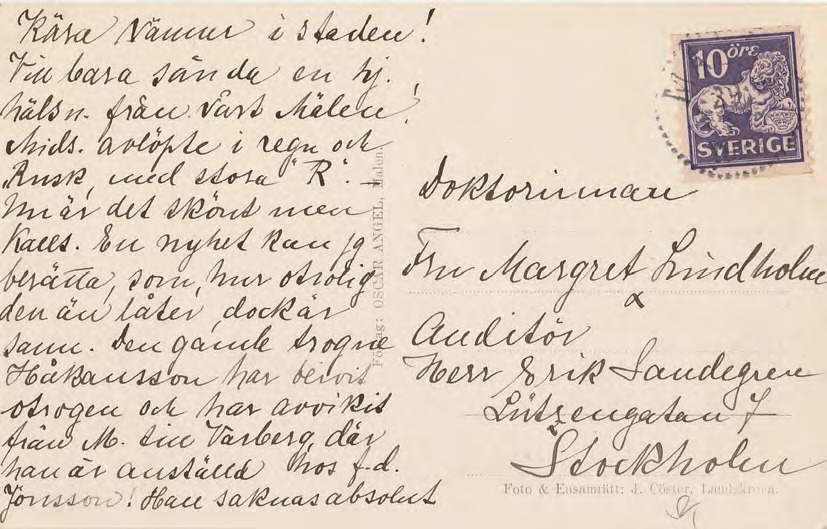 Kära Vänner i staden!
Vill bara sända en hj.
hälsn. från vårt Mälen!
Mids. avlöpte i regn och
Rusk, med stora "R". –
Nu är det skönt men
kallt. En nyhet kan jg
berätta, som, hur otrolig
den än låter, dock är
sann. Den gamle trogne
Håkansson har blivit
otrogen och har avvikit
från M. till Varberg, där
han är anställd hos f.d.
Jönsson! Han saknas absolut
10 ÖRE
SVERIGE
Doktorinnan
Fru Margret Lindholm
Auditör
Herr Erik Sandegren
Lützengatan 7
Stockholm
Förlag: OSCAR ANGEL, Malen.
Foto & Ensamrätt: J. Cöster, Landskrona.